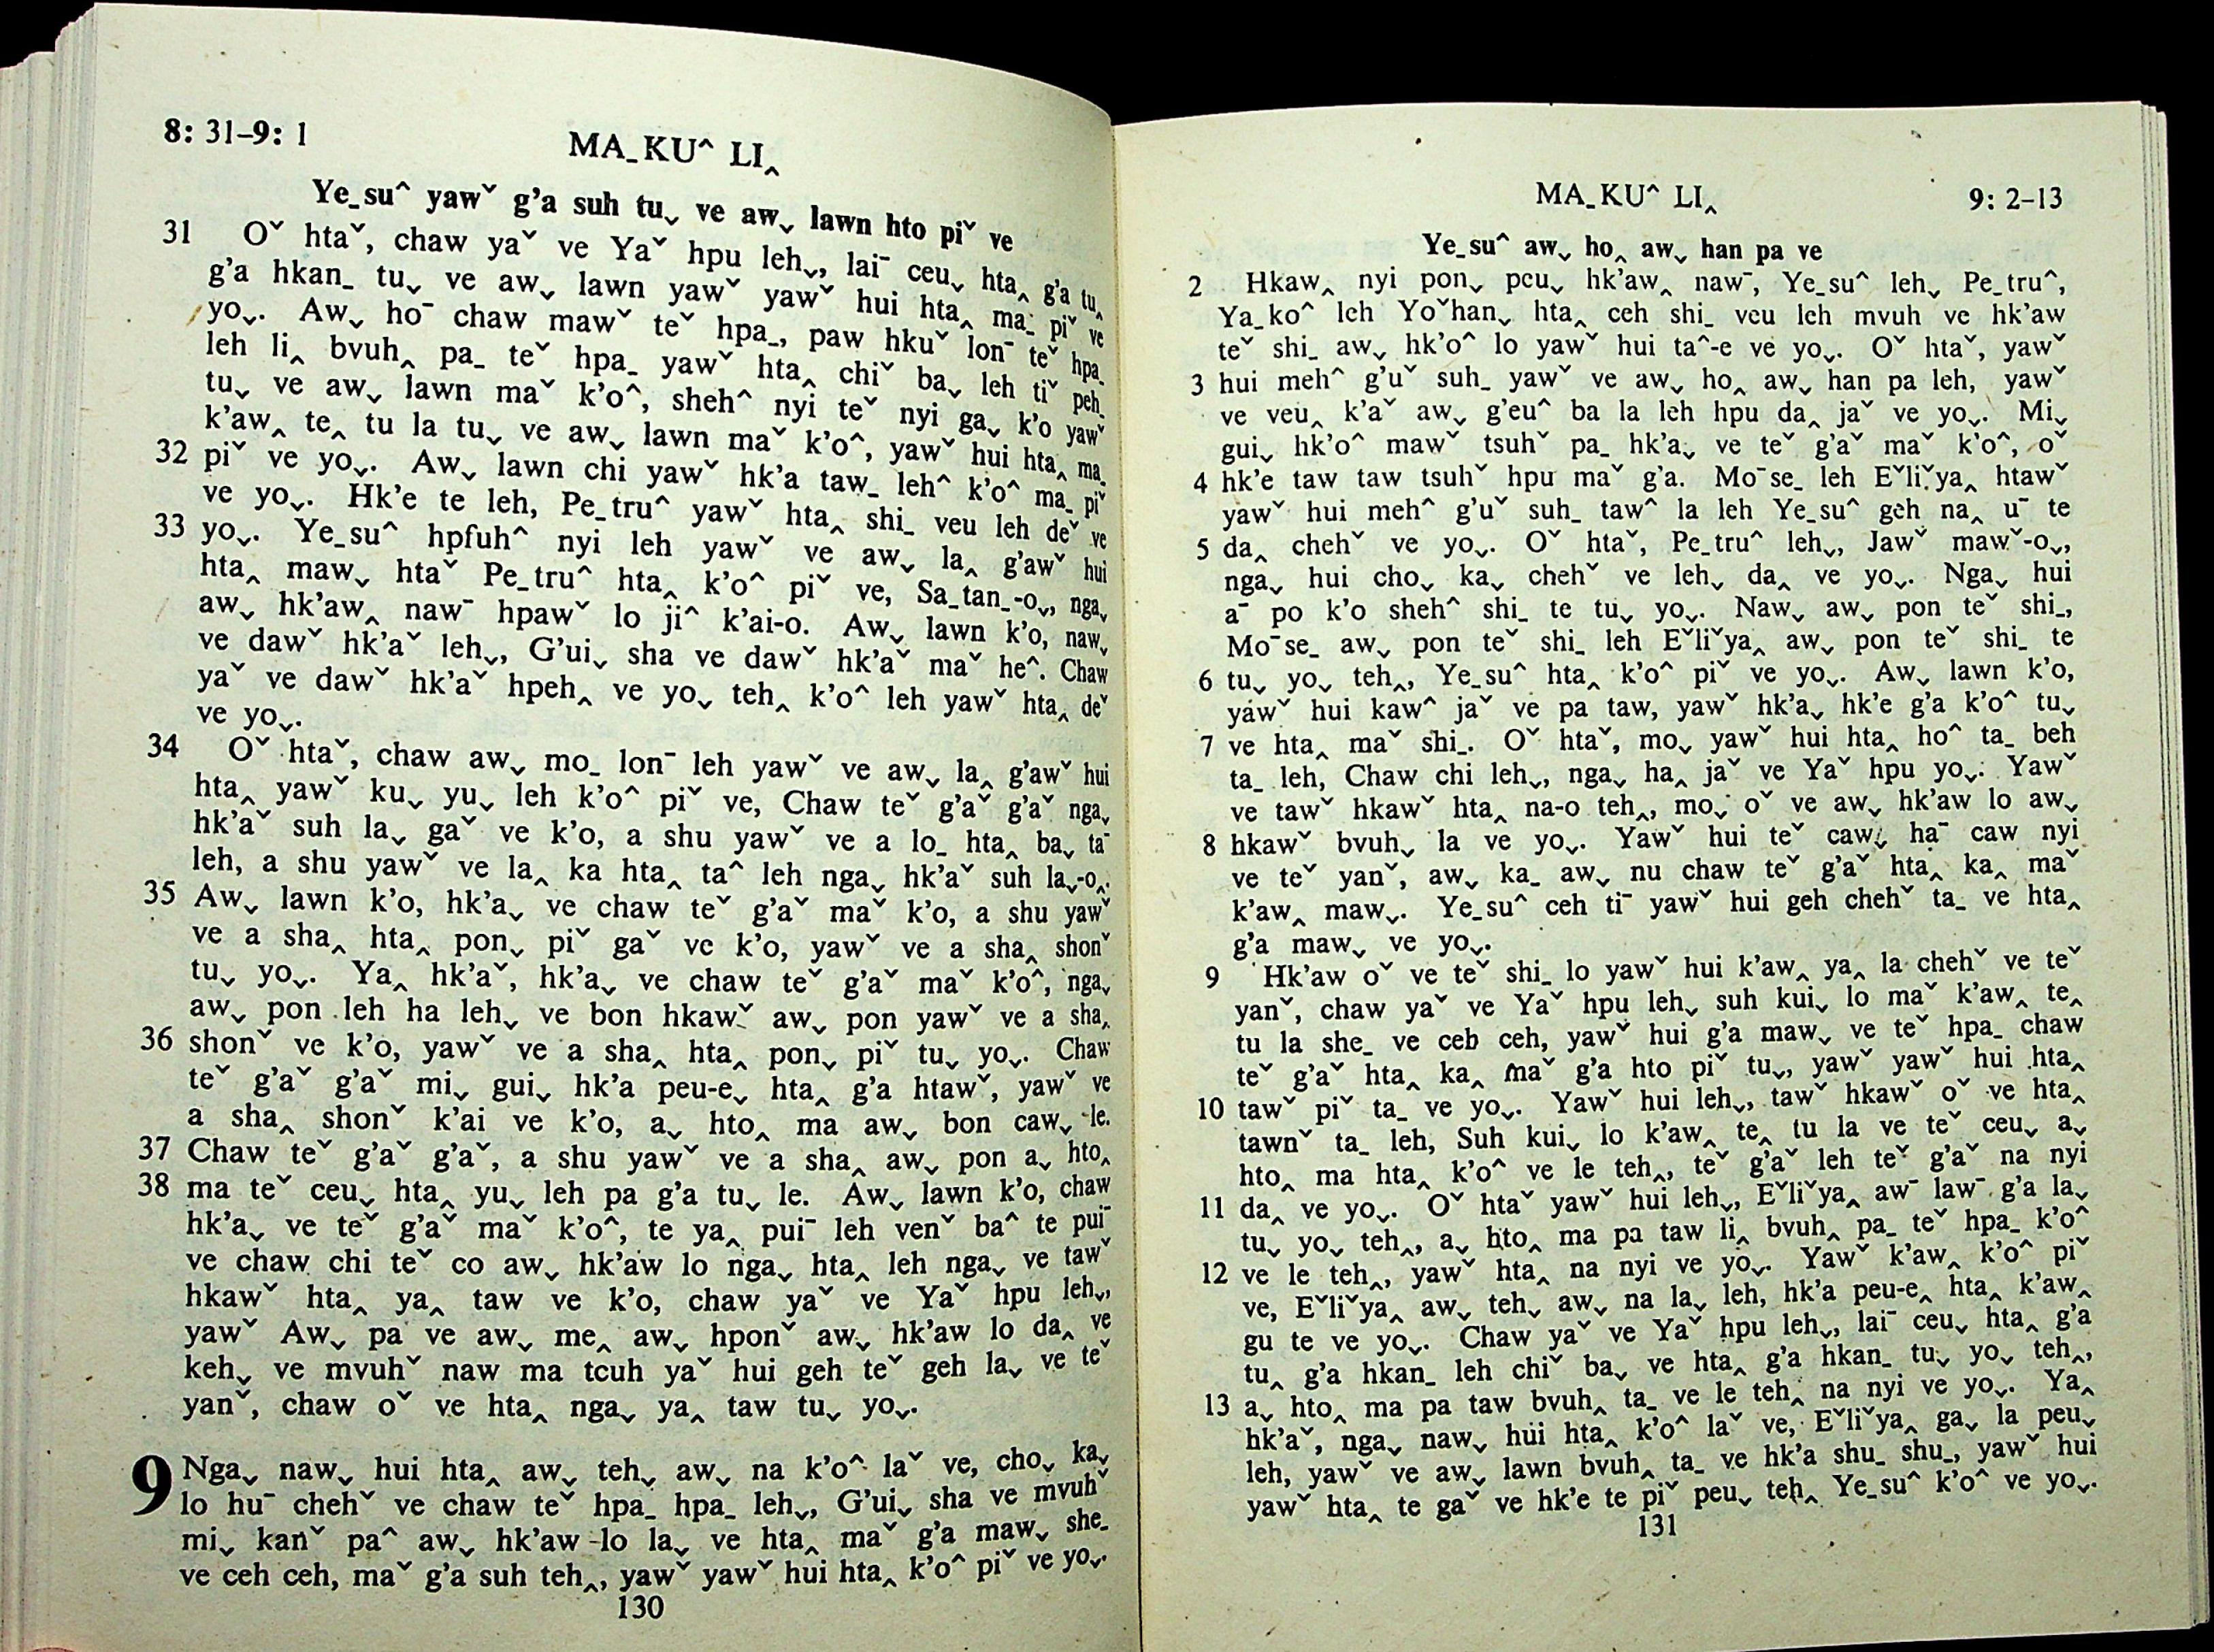 8: 31–9: 1
MAˍKU^ LI‸
Yeˍsu^ yawˇ g'a suh tu⌄ ve aw⌄ lawn hto piˇ ve
31 Oˇ htaˇ, chaw yaˇ ve Yaˇ hpu leh⌄, laiˉ ceu⌄ hta‸ g'a tu‸
g'a hkanˍ tu⌄ ve aw⌄ lawn yawˇ yawˇ hui hta‸ maˍ piˇ ve
yo⌄. Aw⌄ hoˉ chaw mawˇ teˇ hpaˍ, paw hkuˇ lonˉ teˇ hpaˍ
leh li‸ bvuh‸ paˍ teˇ hpaˍ yawˇ hta‸ chiˇ ba⌄ leh tiˇ pehˍ
tu⌄ ve aw⌄ lawn maˇ k'o^, sheh^ nyi teˇ nyi ga⌄ k'o yawˇ
k'aw‸ te‸ tu la tu⌄ ve aw⌄ lawn maˇ k'o^, yawˇ hui hta‸ maˍ
32 piˇ ve yo⌄. Aw⌄ lawn chi yawˇ hk'a tawˍ leh^ k'o^ maˍ piˇ
ve yo⌄. Hk'e te leh, Peˍtru^ yawˇ hta‸ shiˍ veu leh deˇ ve
33 yo⌄. Yeˍsu^ hpfuh^ nyi leh yawˇ ve aw⌄ la‸ g'awˇ hui
hta‸ maw⌄ htaˇ Peˍtru^ hta‸ k'o^ piˇ ve, Saˍtanˍ-o⌄, nga⌄
aw⌄ hk'aw‸ nawˉ hpawˇ lo ji^ k'ai-o. Aw⌄ lawn k'o, naw⌄
ve dawˇ hk'aˇ leh⌄, G'ui⌄ sha ve dawˇ hk'aˇ maˇ he^. Chaw
yaˇ ve dawˇ hk'aˇ hpeh‸ ve yo⌄ teh‸ k'o^ leh yawˇ hta‸ deˇ
ve yo⌄.
34 Oˇ htaˇ, chaw aw⌄ moˍ lonˉ leh yawˇ ve aw⌄ la‸ g'awˇ hui
hta‸ yawˇ ku⌄ yu⌄ leh k'o^ piˇ ve, Chaw teˇ g'aˇ g'aˇ nga⌄
hk'aˇ suh la⌄ gaˇ ve k'o, a shu yawˇ ve a loˍ hta‸ ba⌄ taˉ
leh, a shu yawˇ ve la‸ ka hta‸ ta^ leh nga⌄ hk'aˇ suh la⌄-o‸.
35 Aw⌄ lawn k'o, hk'a⌄ ve chaw teˇ g'aˇ maˇ k'o, a shu yawˇ
ve a sha‸ hta‸ pon⌄ piˇ gaˇ ve k'o, yawˇ ve a sha‸ shonˇ
tu⌄ yo⌄. Ya‸ hk'aˇ, hk'a⌄ ve chaw teˇ g'aˇ maˇ k'o^, nga⌄
aw⌄ pon leh ha leh⌄ ve bon hkawˇ aw⌄ pon yawˇ ve a sha‸
36 shonˇ ve k'o, yawˇ ve a sha‸ hta‸ pon⌄ piˇ tu⌄ yo⌄. Chaw
teˇ g'aˇ g'aˇ mi⌄ gui⌄ hk'a peu-e⌄ hta‸ g'a htawˇ, yawˇ ve
a sha‸ shonˇ k'ai ve k'o, a⌄ hto‸ ma aw⌄ bon caw⌄ le.
37 Chaw teˇ g'aˇ g'aˇ, a shu yawˇ ve a sha‸ aw⌄ pon a⌄ hto‸
38 ma teˇ ceu⌄ hta‸ yu⌄ leh pa g'a tu⌄ le. Aw⌄ lawn k'o, chaw
hk'a⌄ ve teˇ g'aˇ maˇ k'o^, te ya‸ puiˉ leh venˇ ba^ te puiˉ
ve chaw chi teˇ co aw⌄ hk'aw lo nga⌄ hta‸ leh nga⌄ ve tawˇ
hkawˇ hta‸ ya‸ taw ve k'o, chaw yaˇ ve Yaˇ hpu leh⌄,
yawˇ Aw⌄ pa ve aw⌄ me‸ aw⌄ hponˇ aw⌄ hk'aw lo da‸ ve
keh⌄ ve mvuhˇ naw ma tcuh yaˇ hui geh teˇ geh la⌄ ve teˇ
yanˇ, chaw oˇ ve hta‸ nga⌄ ya‸ taw tu⌄ yo⌄.
9 Nga⌄ naw⌄ hui hta‸ aw⌄ teh⌄ aw⌄ na k'o^ laˇ ve, cho⌄ ka⌄
lo huˉ chehˇ ve chaw teˇ hpaˍ hpaˍ leh⌄, G'ui⌄ sha ve mvuhˇ
mi⌄ kanˇ pa^ aw⌄ hk'aw lo la⌄ ve hta‸ maˇ g'a maw⌄ sheˍ
ve ceh ceh, maˇ g'a suh teh‸, yawˇ yawˇ hui hta‸ k'o^ piˇ ve yo⌄.
130
MAˍKU^ LI‸
9: 2–13
Yeˍsu^ aw⌄ ho‸ aw⌄ han pa ve
2 Hkaw‸ nyi pon⌄ peu⌄ hk'aw‸ nawˉ, Yeˍsu^ leh⌄ Peˍtru^,
Yaˍko^ leh Yoˇhan⌄ hta‸ ceh shiˍ veu leh mvuh ve hk'aw
teˇ shiˍ aw⌄ hk'o^ lo yawˇ hui ta^-e ve yo⌄. Oˇ htaˇ, yawˇ
3 hui meh^ g'uˇ suhˍ yawˇ ve aw⌄ ho‸ aw⌄ han pa leh, yawˇ
ve veu‸ k'aˇ aw⌄ g'eu^ ba la leh hpu da‸ jaˇ ve yo⌄. Mi⌄
gui⌄ hk'o^ mawˇ tsuhˇ paˍ hk'a⌄ ve teˇ g'aˇ maˇ k'o^, oˇ
4 hk'e taw taw tsuhˇ hpu maˇ g'a. Moˉseˍ leh Eˇliˇya‸ htawˇ
yawˇ hui meh^ g'uˇ suhˍ taw^ la leh Yeˍsu^ geh na‸ uˉ te
5 da‸ chehˇ ve yo⌄. Oˇ htaˇ, Peˍtru^ leh⌄, Jawˇ mawˇ-o⌄,
nga⌄ hui cho⌄ ka⌄ chehˇ ve leh⌄ da‸ ve yo⌄. Nga⌄ hui
aˉ po k'o sheh^ shiˍ te tu⌄ yo⌄. Naw⌄ aw⌄ pon teˇ shiˍ,
Moˉseˍ aw⌄ pon teˇ shiˍ leh Eˇliˇya‸ aw⌄ pon teˇ shiˍ te
6 tu⌄ yo⌄ teh‸, Yeˍsu^ hta‸ k'o^ piˇ ve yo⌄. Aw⌄ lawn k'o,
yawˇ hui kaw^ jaˇ ve pa taw, yawˇ hk'a⌄ hk'e g'a k'o^ tu⌄
7 ve hta‸ maˇ shiˍ. Oˇ htaˇ, mo⌄ yawˇ hui hta‸ ho^ taˍ beh
taˍ leh, Chaw chi leh⌄, nga⌄ ha‸ jaˇ ve Yaˇ hpu yo⌄. Yawˇ
ve tawˇ hkawˇ hta‸ na-o teh‸, mo⌄ oˇ ve aw⌄ hk'aw lo aw⌄
hkawˇ bvuh⌄ la ve yo⌄.
8 Yawˇ hui teˇ caw⌄ haˉ caw nyi
ve teˇ yanˇ, aw⌄ kaˍ aw⌄ nu chaw teˇ g'aˇ hta‸ ka‸ maˇ
k'aw‸ maw⌄. Yeˍsu^ ceh tiˉ yawˇ hui geh chehˇ taˍ ve hta‸
g'a maw⌄ ve yo⌄.
9 Hk'aw oˇ ve teˇ shiˍ lo yawˇ hui k'aw‸ ya‸ la chehˇ ve teˇ
yanˇ, chaw yaˇ ve Yaˇ hpu leh⌄ suh kui⌄ lo maˇ k'aw‸ te‸
tu la sheˍ ve ceb ceh, yawˇ hui g'a maw⌄ ve teˇ hpaˍ chaw
teˇ g'aˇ hta‸ ka‸ maˇ g'a hto piˇ tu⌄, yawˇ yawˇ hui hta‸
10 tawˇ piˇ taˍ ve yo⌄. Yawˇ hui leh⌄, tawˇ hkawˇ oˇ ve hta‸
tawnˇ taˍ leh, Suh kui⌄ lo k'aw‸ te‸ tu la ve teˇ ceu⌄ a⌄
hto‸ ma hta‸ k'o^ ve le teh‸, teˇ g'aˇ leh teˇ g'aˇ na nyi
11 da‸ ve yo⌄. Oˇ htaˇ yawˇ hui leh⌄, Eˇliˇya‸ awˉ lawˉ g'a la⌄
tu⌄ yo⌄ teh‸, a⌄ hto‸ ma pa taw li‸ bvuh‸ paˍ teˇ hpaˍ k'o^
12 ve le teh‸, yawˇ hta‸ na nyi ve yo⌄. Yawˇ k'aw‸ k'o^ piˇ
ve, Eˇliˇya‸ aw⌄ teh⌄ aw⌄ na la⌄ leh, hk'a peu-e‸ hta‸ k'aw‸
gu te ve yo⌄. Chaw yaˇ ve Yaˇ hpu leh⌄, laiˉ ceu⌄ hta‸ g'a
tu‸ g'a hkanˍ leh chiˇ ba⌄ ve hta‸ g'a hkanˍ tu⌄ yo⌄ teh‸,
13 a⌄ hto‸ ma pa taw bvuh‸ taˍ ve le teh‸ na nyi ve yo⌄. Ya‸
hk'aˇ, nga⌄ naw⌄ hui hta‸ k'o^ laˇ ve, Eˇliˇya‸ ga⌄ la peu⌄
leh, yawˇ ve aw⌄ lawn bvuh‸ taˍ ve hk'a shuˍ shuˍ, yawˇ hui
yawˇ hta‸ te gaˇ ve hk'e te piˇ peu⌄ teh‸ Yeˍsu^ k'o^ ve yo⌄.
131